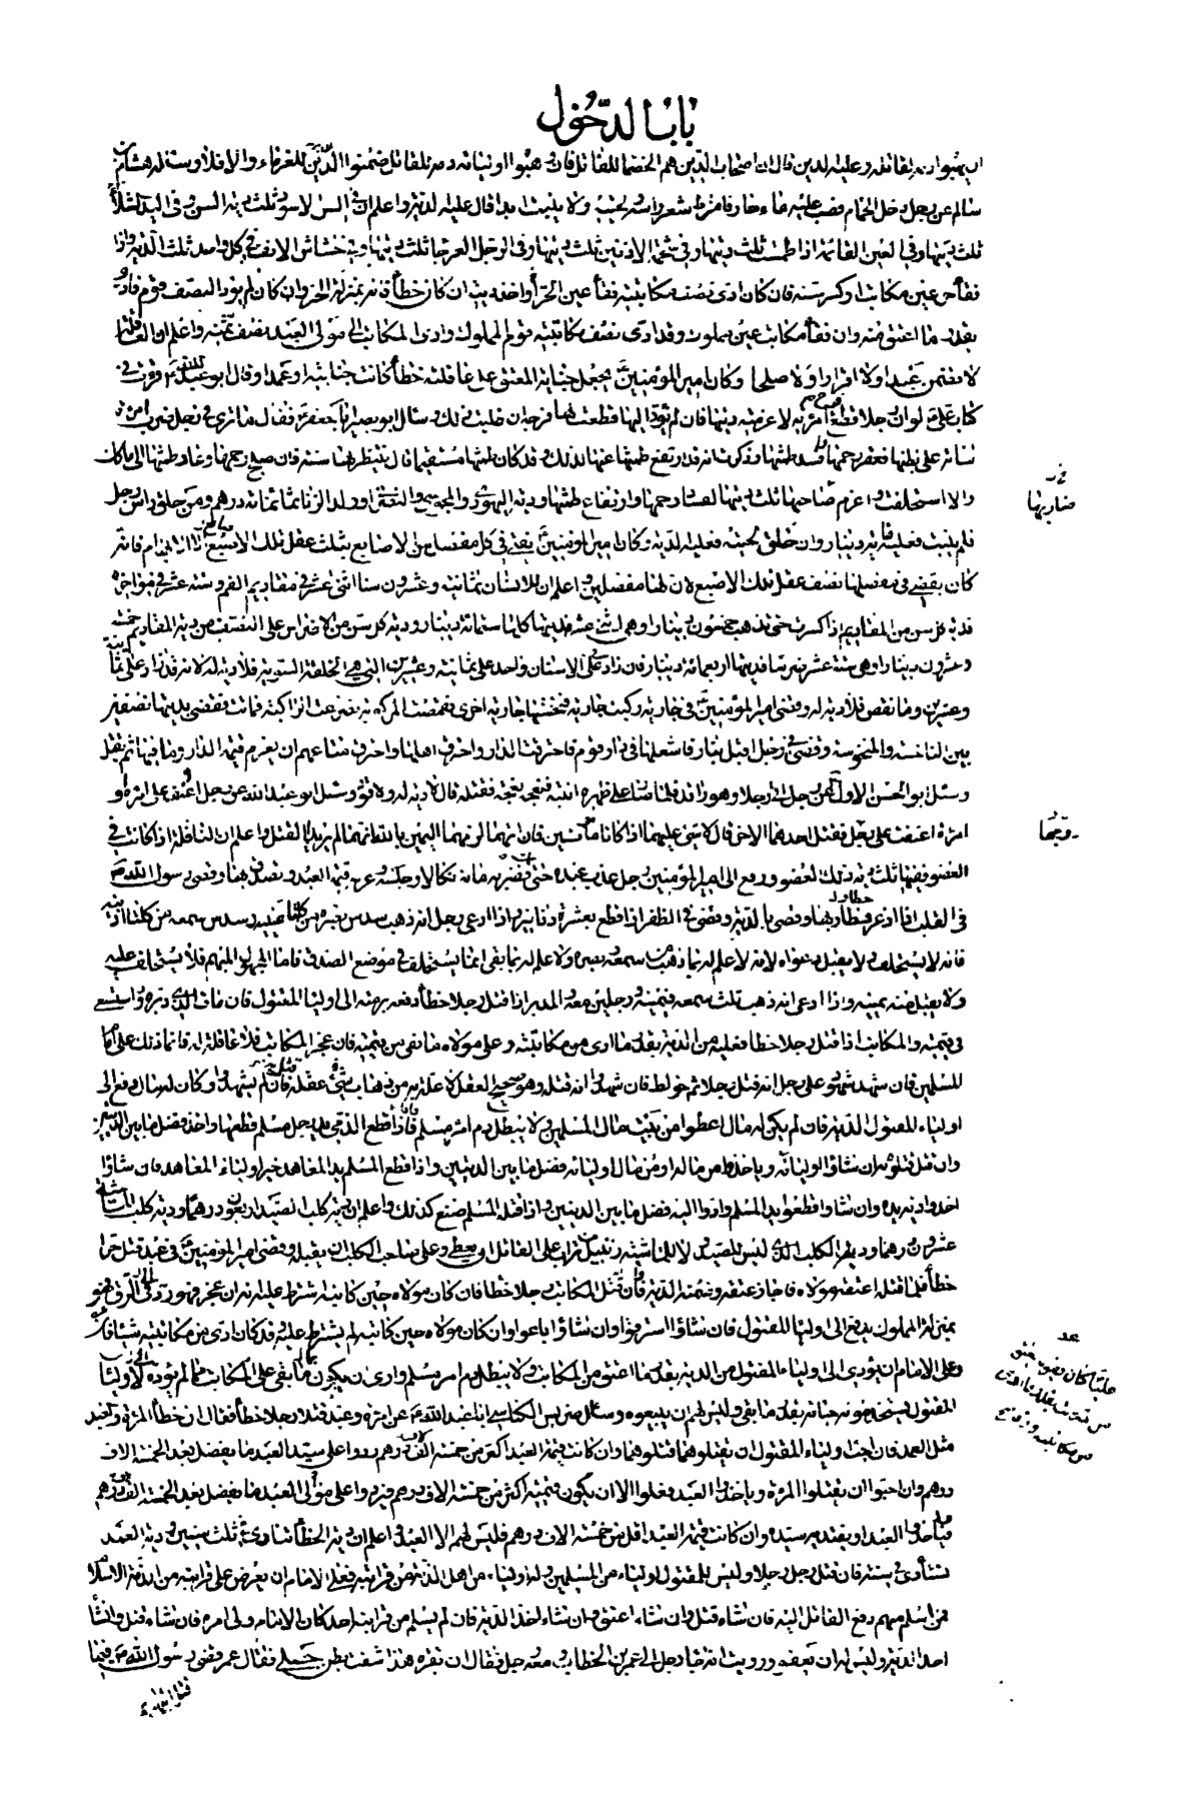 باب الدخول
ان يهبوا دمه لقاتله وعليه الدين قال ان اصحاب الدين هم الخصماء للقاتل فان وهبوا اوليائه دمه للقاتل ضمنوا الدين للغرماء والا فلا وسئله هشام بن
سالم عن رجل دخل الحمام فصب عليه ماء حار فامترط شعر راسه ولحيته ولا ينبت ابدا قال عليه الدية واعلم ان في السن الاسود ثلث دية السن وفى اليد الشلاء
ثلث ديتها وفي العين القائمة اذا طمست ثلث ديتها وفي شحمة الاذنين ثلث ديتها وفي الرجل العرجا ثلث ديتها وفي خشاش الانف في كل واحد ثلث الدية واذا
فقأ حر عين مكاتب او كسر سنه فان كان ادى نصف مكاتبته فقأ عين الحر او اخذ ديته ان كان خطأ فانه بمنزلة الحر وان كان لم يؤد النصف قوم فادى
بقدر ما اعتق منه وان فقأ مكاتب عين مملوك وقد ادى نصف مكاتبته قوم المملوك وادى المكاتب الى مولى العبد نصف ثمنه واعلم ان العاقلة
لا تضمن عمدا ولا اقرارا ولا صلحا وكان امير المؤمنين يجعل جناية المعتوه على عاقلته خطأ كانت جنايته او عمدا وقال ابو عبد الله ع قرئت في
كتاب علي ع لو ان رجلا قطع فرج امرئته لاغرمته ديتها فان لم يؤد اليها قطعت لها فرجه ان طلبت ذلك وسئل ابو بصير ابا جعفر ع فقال ما ترى في رجل ضرب امرئة
شابة على بطنها فعقر رحمها فافسد طمثها وذكرت انه قد ارتفع طمثها عنها لذلك وقد كان طمثها مستقيما قال ينتظر بها سنة فان صلح رحمها وعاد طمثها الى ما كان
والا استحلفت واغرم ضاربها ثلث ديتها لفساد رحمها وارتفاع طمثها ودية اليهودي والمجوسي والنصراني وولد الزنا ثمانمائة درهم ومن حلق راس رجل
فلم ينبت فعليه مائة دينار وان حلق لحيته فعليه الدية وكان امير المؤمنين يقضي في كل مفصل من الاصابع بثلث عقل تلك الاصبع الا الابهام فانه
كان يقضي في مفصلها نصف عقل تلك الاصبع لان لها مفصلين واعلم ان للانسان ثمانية وعشرون سنا اثنى عشر في مقاديم الفم وستة عشر في مواخره
فدية كل سن من المقاديم اذا كسرت حتى تذهب خمسون دينارا وهى اثنى عشر فديتها كلها ستمائة دينار ودية كل سن من الاضراس على النصف من دية المقاديم خمسة
وعشرون دينارا وهى ستة عشر ضرسا فديتها اربعمائة دينار فان زاد على الاسنان واحد على ثمانية وعشرين التي هي الخلقة السوية فلا دية له لانه قد زاد على ثمانية
وعشرين وما نقص فلا دية له وقضى امير المؤمنين في جارية ركبت جارية فنخستها جارية اخرى فقمصت المركوبة فصرعت الراكبة فماتت فقضى بديتها نصفين
بين الناخسة والمنخوسة وقضى في رجل اقبل بنار فاشعلها في دار قوم فاحترقت الدار واحترق اهلها واحترق متاعهم ان يغرم قيمة الدار وما فيها ثم يقتل
وسئل ابو الحسن الاول عن رجل اتى رجلا وهو راقد فلما صار على ظهره انتبه فبعجه بعجة فقتله قال لا دية له ولا قود وسئل ابو عبد الله عن رجل اعنف على امرئة او
امرئة اعنفت على رجل فقتل احدهما الاخر قال لا شيئ عليهما اذا كانا مأمونين فان اتهما الزمهما اليمين بالله انهما لم يريدا القتل واعلم ان النافلة اذا كانت في
العضو ففيها ثلث دية ذلك العضو ورفع الى امير المؤمنين رجل عذب عبده حتى مات فضربه مائة نكالا وحبسه وغرمه قيمة العبد وتصدق بها وقضى رسول الله ص
في القلب اذا ارعد فطار بالدية وقضى في الظفر اذا قطع بعشرة دنانير واذا ادعى رجل انه ذهب سدس بصره من كلتا عينيه وسدس سمعه من كلتا اذنيه
فانه لا يستحلف ولا يقبل دعواه لانه لا علم له بما ذهب من سمعه وبصره ولا علم له بما بقى انما يستحلف في موضع الصدق فاما المجهول المبهم فلا يستحلف عليه
ولا يقبل منه يمينه واذا ادعى انه ذهب ثلث سمعه فيمينه ورجلين معه والمدبر اذا قتل رجلا خطأ دفع برمته الى اولياء المقتول فان مات الذي دبره استسعى
في قيمته والمكاتب اذا قتل رجلا خطأ فعليه من الدية بقدر ما ادى من مكاتبته وعلى مولاه ما بقى من قيمته فان عجز المكاتب فلا عاقلة له فانما ذلك على امام
المسلمين فان شهد شهود على رجل انه قتل رجلا ثم خولط فان شهدوا انه قتله وهو صحيح العقل لا علة به من ذهاب عقله قتل به فان لم يشهدوا وكان له مال دفع الى
اولياء المقتول الدية فان لم يكن له مال اعطوا من بيت مال المسلمين ولا يبطل دم امرء مسلم فاذا قطع الذمي يد رجل مسلم قطعت يده واخذ فضل ما بين الديتين
وان قتل قتلوه به ان شاؤا اوليائه وياخذوا من ماله او من مال اوليائه فضل ما بين الديتين واذا قطع المسلم يد المعاهد خير اولياء المعاهد فان شاؤا
اخذوا دية يده وان شاؤا قطعوا يد المسلم وادوا اليه فضل ما بين الديتين واذا قتله المسلم صنع كذلك واعلم ان دية كلب الصيد اربعون درهما ودية كلب الماشية
عشرون درهما ودية الكلب الذي ليس للصيد ولا للماشية زنبيل من تراب على القاتل ان يعطي وعلى صاحب الكلب ان يقبله وقضى امير المؤمنين في عبد قتل حرا
خطأ فلما قتله اعتقه مولاه فاجاز عتقه وضمنه الدية فان قتل المكاتب رجلا خطأ فان كان مولاه حين كاتبه شرط عليه انه ان عجز فهو رد الى الرق فهو
بمنزلة المملوك يدفع الى اولياء المقتول فان شاؤا استرقوا وان شاؤا باعوا وان كان مولاه حين كاتبه لم يشترط عليه وقد كان ادى من مكاتبته شيئا فانه
وعلى الامام ان يؤدي الى اولياء المقتول من الدية بقدر ما اعتق من المكاتب ولا يبطل دم امرء مسلم وارى ان يكون ما بقى على المكاتب مما لم يؤده لاولياء
المقتول يستخدمونه حياته بقدر ما بقى وليس لهم ان يبيعوه وسئل ضريس الكناسي ابا عبد الله ع عن امرئة وعبد قتلا رجلا خطأ فقال ان خطأ المرئة والعبد
مثل العمد فان احب اولياء المقتول ان يقتلوهما قتلوهما وان كانت قيمة العبد اكثر من خمسة آلاف درهم ردوا على سيد العبد ما يفضل بعد الخمسة الاف
درهم وان احبوا ان يقتلوا المرئة وياخذوا العبد فعلوا الا ان يكون قيمته اكثر من خمسة الاف درهم فيردوا على مولى العبد ما يفضل بعد الخمسة الاف درهم
فياخذوا العبد او يفتديه سيده وان كانت قيمة العبد اقل من خمسة الاف درهم فليس لهم الا العبد واعلم ان دية الخطأ تستأدى في ثلث سنين ودية العمد
تستأدى في سنة فان قتل رجل رجلا وليس للمقتول اولياء من المسلمين وله اولياء من اهل الذمة من قرابته فعلى الامام ان يعرض على قرابته من الذمة الاسلام
فمن اسلم منهم دفع القاتل اليه فان شاء قتل وان شاء اعتق وان شاء اخذ الدية فان لم يسلم من قرابته احد كان الامام ولى امره فان شاء قتل وان شاء
اخذ الدية وليس له ان يعفو ورويت انه جاء رجل الى عمر بن الخطاب ومعه رجل فقال ان بقرة هذا شقت بطن جملي فقال عمر قضى رسول الله ص فيما
ضاربها
ديتها
قتل البهائم